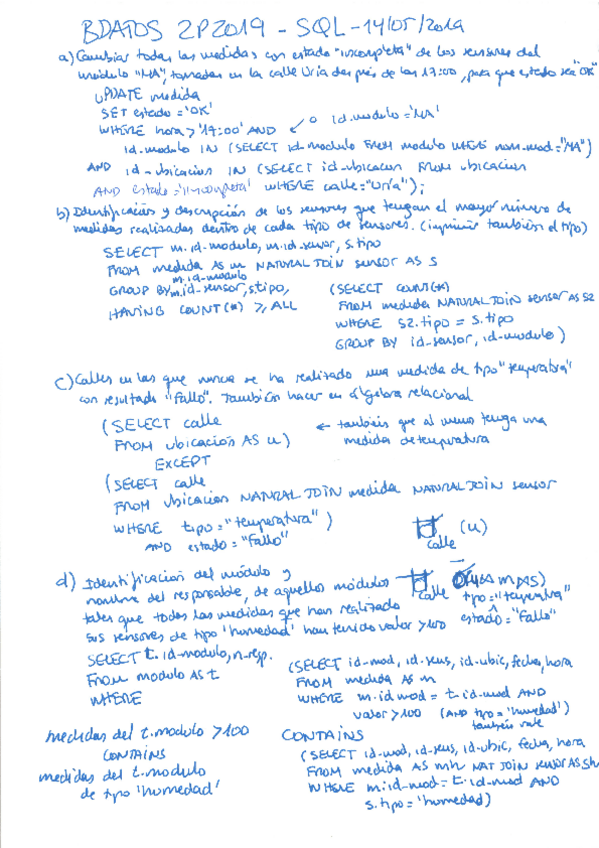 BDATOS 2P2019 - SQL - 14/05/2019
a) Cambiar todas las medidas con estado "incompleta" de los sensores del
módulo "MA", tomadas en la calle Uría después de las 17:00, para que estado sea "OK"
UPDATE medida
SET estado = 'OK'
WHERE hora > '17:00' AND ↙ o id_modulo = 'MA'
id_modulo IN (SELECT id_modulo FROM modulo WHERE nom_mod = "MA")
AND id_ubicacion IN (SELECT id_ubicacion FROM ubicacion
AND estado = 'incompleta' WHERE calle = "Uría");
b) Identificación y descripción de los sensores que tengan el mayor número de
medidas realizadas dentro de cada tipo de sensores. (imprimir también el tipo)
SELECT m.id_modulo, m.id_sensor, s.tipo
FROM medida AS m NATURAL JOIN sensor AS S
m.id_modulo
GROUP BY m.id_sensor, s.tipo,
HAVING COUNT(*) ≥ ALL
(SELECT COUNT(*)
FROM medida NATURAL JOIN sensor AS S2
WHERE S2.tipo = S.tipo
GROUP BY id_sensor, id_modulo)
c) Calles en las que nunca se ha realizado una medida de tipo "temperatura"
con resultado "Fallo". También hacer en álgebra relacional
(SELECT calle
FROM ubicación AS u)
← también que al menos tenga una
medida de temperatura
EXCEPT
(SELECT calle
FROM Ubicacion NATURAL JOIN medida NATURAL JOIN sensor
WHERE tipo = "temperatura")
AND estado = "Fallo"
π (u)
calle
—
π σ (u ⋈ m ⋈ s)
calle tipo = "temperatura"
^
estado = "Fallo"
d) Identificación del módulo y
nombre del responsable, de aquellos módulos
tales que todas las medidas que han realizado
sus sensores de tipo 'humedad' han tenido valor > 100
SELECT t.id_modulo, n_resp.
FROM modulo AS t
WHERE
(SELECT id_mod, id_sens, id_ubic, fecha, hora
FROM medida AS m
WHERE m.id_mod = t.id_mod AND
valor > 100 (AND tipo = 'humedad')
también vale
CONTAINS
(SELECT id_mod, id_sens, id_ubic, fecha, hora
FROM medida AS mh NAT JOIN sensor AS sh
WHERE m.id_mod = t.id_mod AND
s.tipo = 'humedad)
medidas del t.modulo > 100
CONTAINS
medidas del t.modulo
de tipo 'humedad'